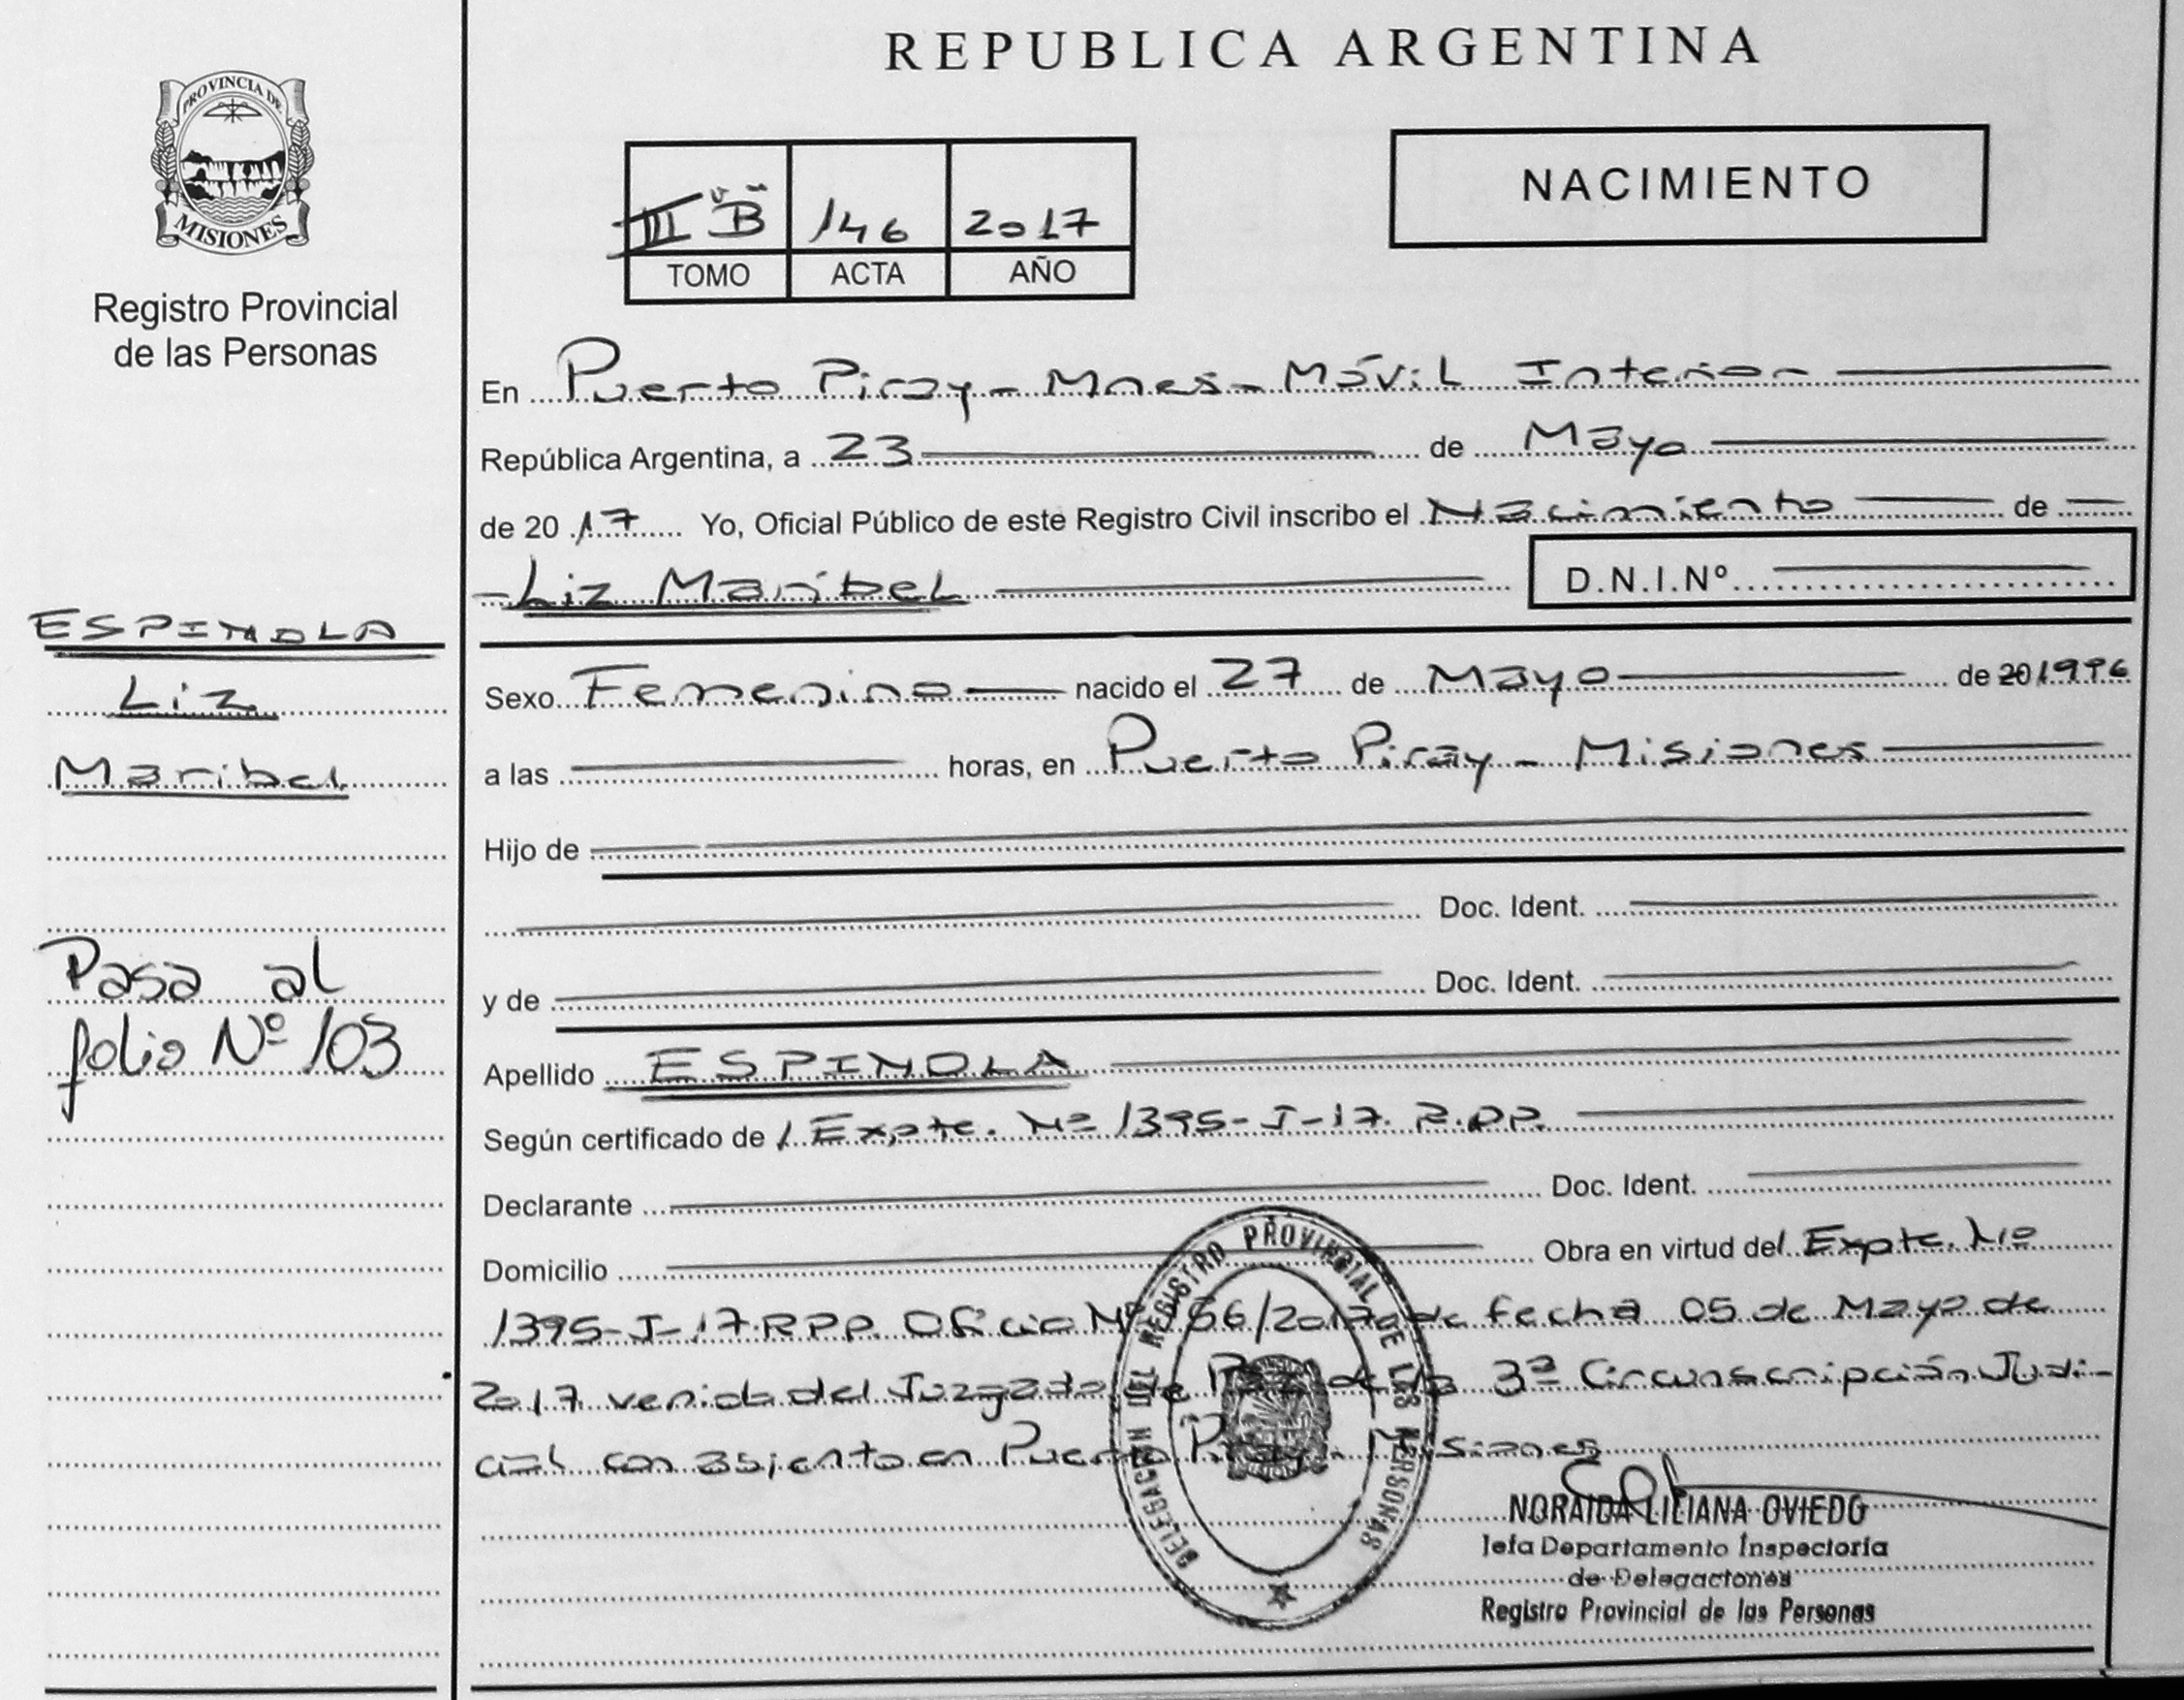 REPUBLICA ARGENTINA
PROVINCIA DE
MISIONES
Registro Provincial
de las Personas
III "B" 146 2017
TOMO ACTA AÑO
NACIMIENTO
En Puerto Piray - Mnes - Móvil Interior
República Argentina, a 23 de Mayo
de 2017 Yo, Oficial Público de este Registro Civil inscribo el Nacimiento de
Liz Maribel D.N.I.Nº
ESPINOLA
Liz
Maribel
Pasa al
folio Nº 103
Sexo Femenino nacido el 27 de Mayo de 20 1996
a las horas, en Puerto Piray - Misiones
Hijo de
Doc. Ident.
y de Doc. Ident.
Apellido ESPINOLA
Según certificado del Expte. Nº 1395-I-17. R.P.P.
Declarante Doc. Ident.
Domicilio Obra en virtud del Expte. Nº
1395-I-17.RPP. Oficio Nº 166/2017 de fecha 05 de Mayo de
2017 venido del Juzgado de Paz de la 3ª Circunscripción Judi-
cial con asiento en Puerto Piray - Misiones
REGISTRO PROVINCIAL DE LAS PERSONAS
DELEGACION
NORAIDA LILIANA OVIEDO
Jefa Departamento Inspectoría
de Delegaciones
Registro Provincial de las Personas